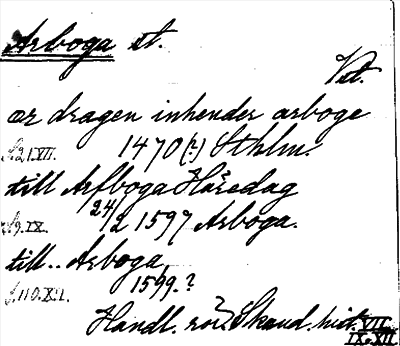 Arboga st.
Vst.
ær dragen inhender arboge
1470(?) Sthlm.
S. 21. VII.
till Arfboga Häredag
24/2 1597 Arboga.
S. 9. IX.
till.. Arboga
1599.?
S. 110. XII.
Handl. rör. Skand. hist. VII.
IX. XII.